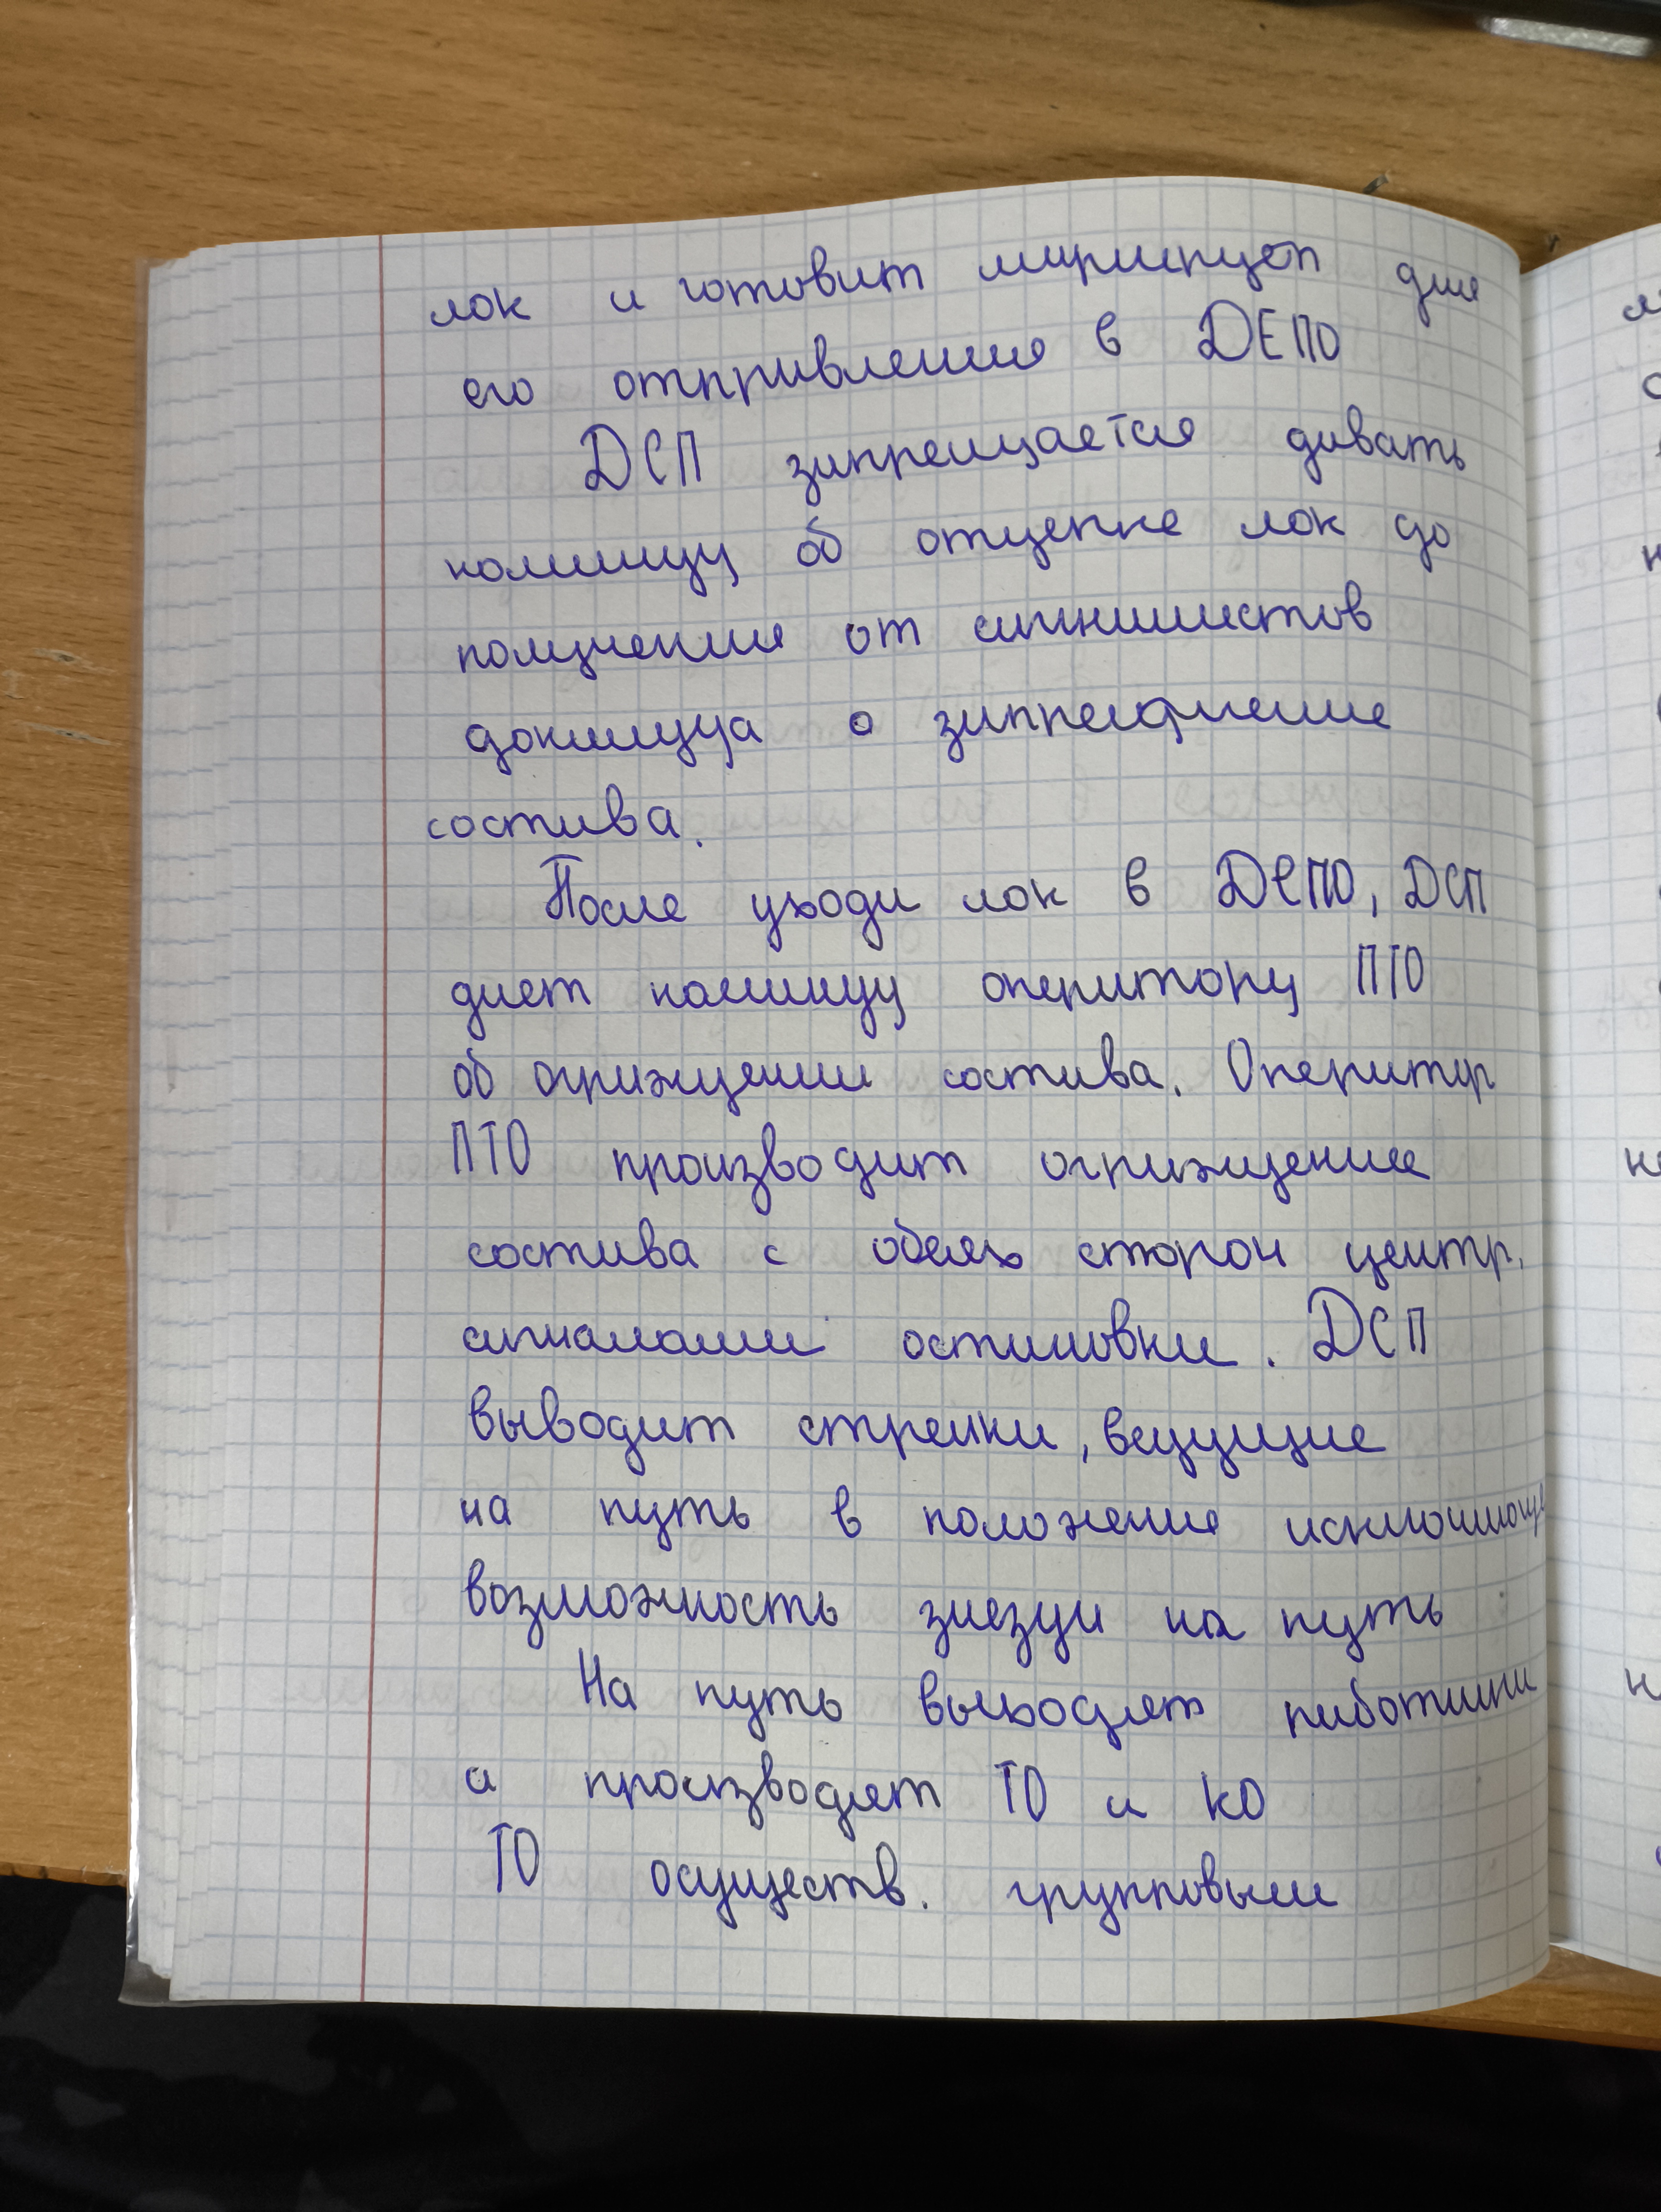 лок и готовит маршрут для
его отправления в ДЕПО
ДСП запрещается давать
команду об отцепке лок до
получения от сигналистов
доклада о закреплении
состава.
После ухода лок в ДЕПО, ДСП
дает команду оператору ПТО
об ограждении состава. Оператор
ПТО производит ограждение
состава с обеих сторон центр.
сигналами остановки. ДСП
выводит стрелки, ведущие
на путь в положение исключающ
возможность заезда на путь
На путь выходят работники
и производят ТО и КО
ТО осуществ. групповым